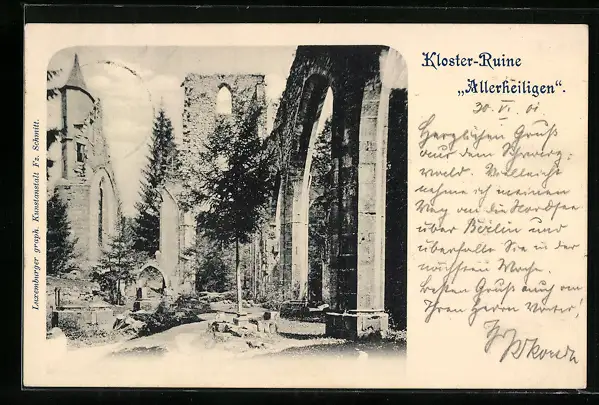 Kloster-Ruine
„Allerheiligen“.
30. VI. 01
Herzlichen Gruß
aus dem Schwarz-
wald. Vielleicht
nehme ich meinen
Weg an die Nordsee
über Berlin und
überfalle Sie in der
nächsten Woche.
Besten Gruß auch an
Ihren Herrn Vater!
Luxemburger graph. Kunstanstalt Fz. Schmitt.